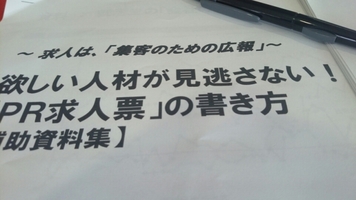 ～ 求人は、「集客のための広報」～
欲しい人材が見逃さない！
PR求人票」の書き方
補助資料集】